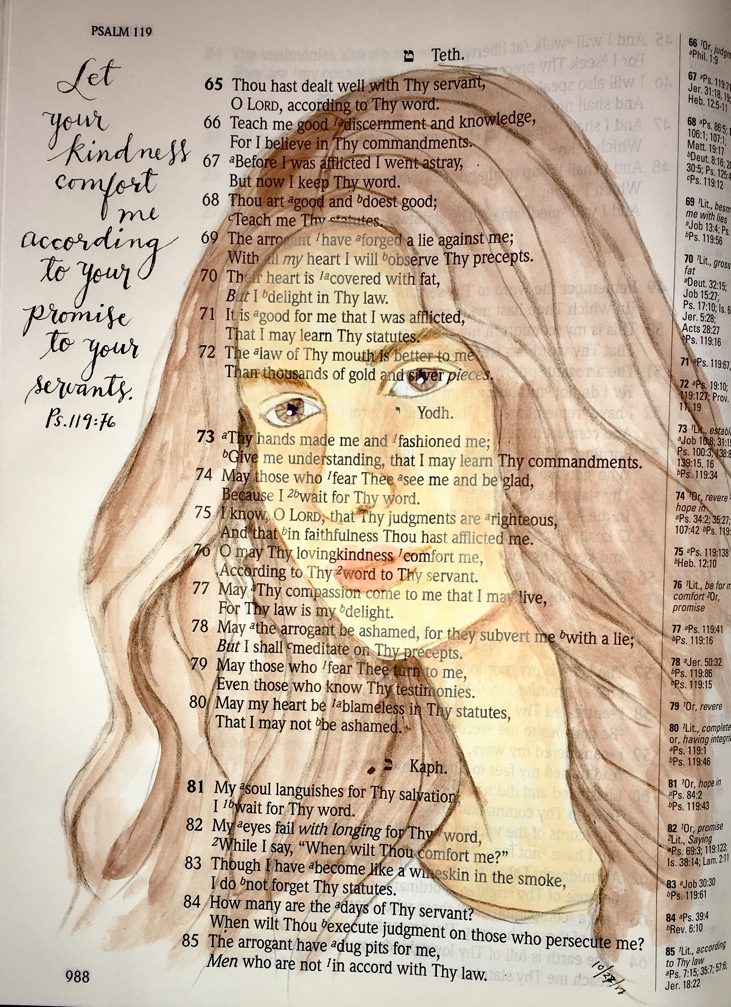 PSALM 119
Let
your
kindness
comfort
me
according
to your
promise
to your
servants.
Ps. 119:76
ט Teth.
65 Thou hast dealt well with Thy servant,
O LORD, according to Thy word.
66 Teach me good ¹ᵃdiscernment and knowledge,
For I believe in Thy commandments.
67 ᵃBefore I was afflicted I went astray,
But now I keep Thy word.
68 Thou art ᵃgood and ᵇdoest good;
ᶜTeach me Thy statutes.
69 The arrogant ¹have ᵃforged a lie against me;
With all my heart I will ᵇobserve Thy precepts.
70 Their heart is ¹ᵃcovered with fat,
But I ᵇdelight in Thy law.
71 It is ᵃgood for me that I was afflicted,
That I may learn Thy statutes.
72 The ᵃlaw of Thy mouth is better to me
Than thousands of gold and silver pieces.
י Yodh.
73 ᵃThy hands made me and ¹fashioned me;
ᵇGive me understanding, that I may learn Thy commandments.
74 May those who ¹fear Thee ᵃsee me and be glad,
Because I ²ᵇwait for Thy word.
75 I know, O LORD, that Thy judgments are ᵃrighteous,
And that ᵇin faithfulness Thou hast afflicted me.
76 O may Thy lovingkindness ¹comfort me,
According to Thy ²word to Thy servant.
77 May ᵃThy compassion come to me that I may live,
For Thy law is my ᵇdelight.
78 May ᵃthe arrogant be ashamed, for they subvert me ᵇwith a lie;
But I shall ᶜmeditate on Thy precepts.
79 May those who ¹fear Thee turn to me,
Even those who know Thy testimonies.
80 May my heart be ¹ᵃblameless in Thy statutes,
That I may not ᵇbe ashamed.
כ Kaph.
81 My ᵃsoul languishes for Thy salvation;
I ¹ᵇwait for Thy word.
82 My ᵃeyes fail with longing for Thy ¹word,
²While I say, “When wilt Thou comfort me?”
83 Though I have ᵃbecome like a wineskin in the smoke,
I do ᵇnot forget Thy statutes.
84 How many are the ᵃdays of Thy servant?
When wilt Thou ᵇexecute judgment on those who persecute me?
85 The arrogant have ᵃdug pits for me,
Men who are not ¹in accord with Thy law.
988
66 ¹Or, judgm
ᵃPhil. 1:9
67 ᵃPs. 119:71
Jer. 31:18, 19
Heb. 12:5-11
68 ᵃPs. 86:5;
106:1; 107:1;
Matt. 19:17
ᵇDeut. 8:16; 28
30:5; Ps. 125:4
ᶜPs. 119:12
69 ¹Lit., besm
me with lies
ᵃJob 13:4; Ps.
ᵇPs. 119:56
70 ¹Lit., gross
fat
ᵃDeut. 32:15;
Job 15:27;
Ps. 17:10; Is. 6
Jer. 5:28;
Acts 28:27
ᵇPs. 119:16
71 ᵃPs. 119:67,
72 ᵃPs. 19:10;
119:127; Prov.
11, 19
73 ¹Lit., establ
ᵃJob 10:8; 31:15
Ps. 100:3; 138:8
139:15, 16
ᵇPs. 119:34
74 ¹Or, revere
hope in
ᵃPs. 34:2; 35:27;
107:42 ᵇPs. 119:
75 ᵃPs. 119:138
ᵇHeb. 12:10
76 ¹Lit., be for m
comfort ²Or,
promise
77 ᵃPs. 119:41
ᵇPs. 119:16
78 ᵃJer. 50:32
ᵇPs. 119:86
ᶜPs. 119:15
79 ¹Or, revere
80 ¹Lit., complete
or, having integri
ᵃPs. 119:1
ᵇPs. 119:46
81 ¹Or, hope in
ᵃPs. 84:2
ᵇPs. 119:43
82 ¹Or, promise
²Lit., Saying
ᵃPs. 69:3; 119:123;
Is. 38:14; Lam. 2:11
83 ᵃJob 30:30
ᵇPs. 119:61
84 ᵃPs. 39:4
ᵇRev. 6:10
85 ¹Lit., according
to Thy law
ᵃPs. 7:15; 35:7; 57:6;
Jer. 18:22
10/28/17